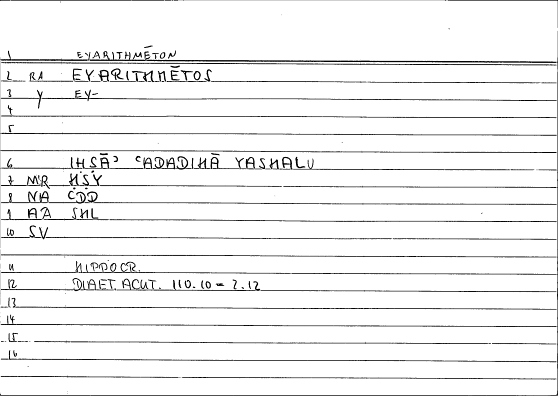 1 EYARITHMĒTON
2 RA EYARITHMĒTOS
3 Y EY-
4
5
6 IḤṢĀʾ ʿADADIHĀ YASHALU
7 MR ḤṢY
8 NA ʿDD
9 AA SHL
10 SV
11 HIPPOCR.
12 DIAET. ACUT. 110.10 = 2.12
13
14
15
16